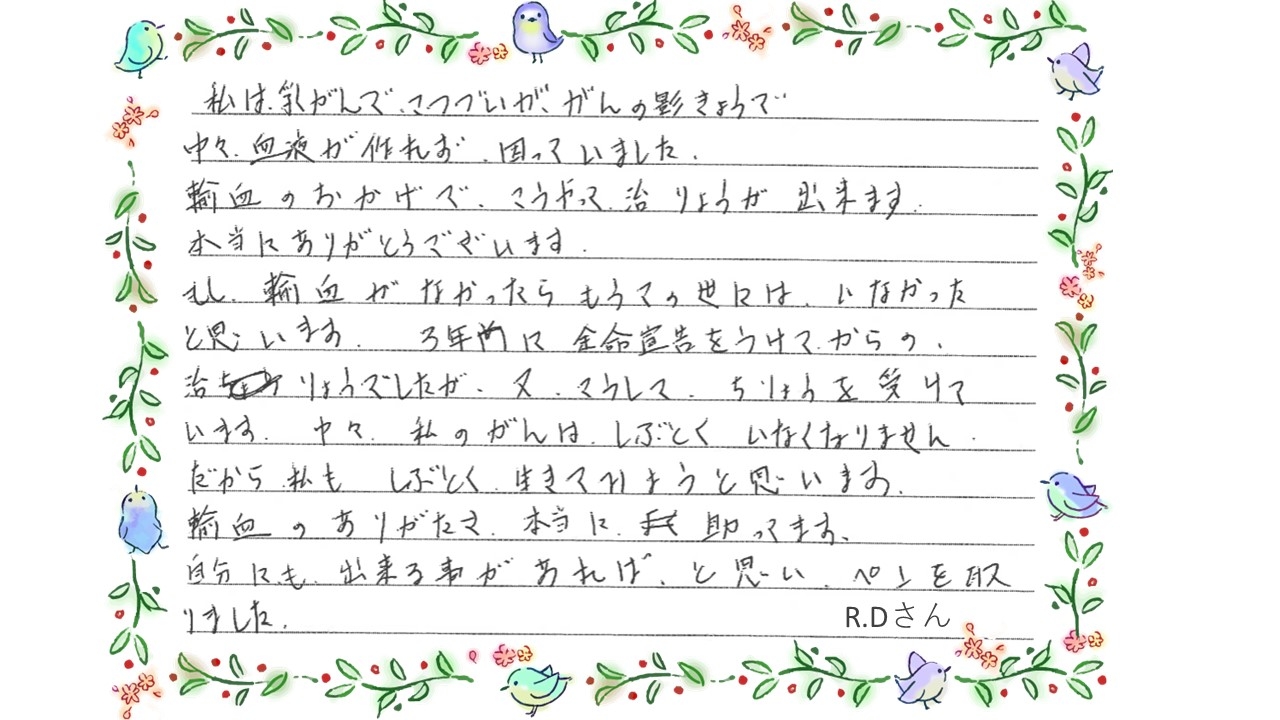 私は、乳がんで、こつづいが、がんの影きょうで
中々、血液が作れず、困っていました。
輸血のおかげで、こうやって、治りょうが出来ます。
本当にありがとうございます。
もし、輸血がなかったらもうこの世には、いなかった
と思います。3年前に余命宣告をうけて、からの、
治りょうでしたが、又、こうして、ちりょうを受けて
います。中々、私のがんは、しぶとくいなくなりません。
だから、私もしぶとく、生きていようと思います。
輸血のありがたさ、本当に、助ってます、
自分にも、出来る事があれば、と思い、ペンを取
りました。
R.Dさん